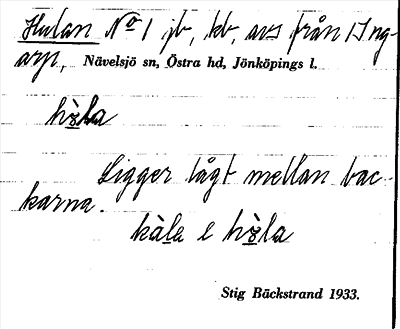 Hulan No 1 jb, kb, avs från 1 Ing-
arp, Nävelsjö sn, Östra hd, Jönköpings l.
hòla
Ligger lågt mellan bac-
karna.
kàla e hòla
Stig Bäckstrand 1933.